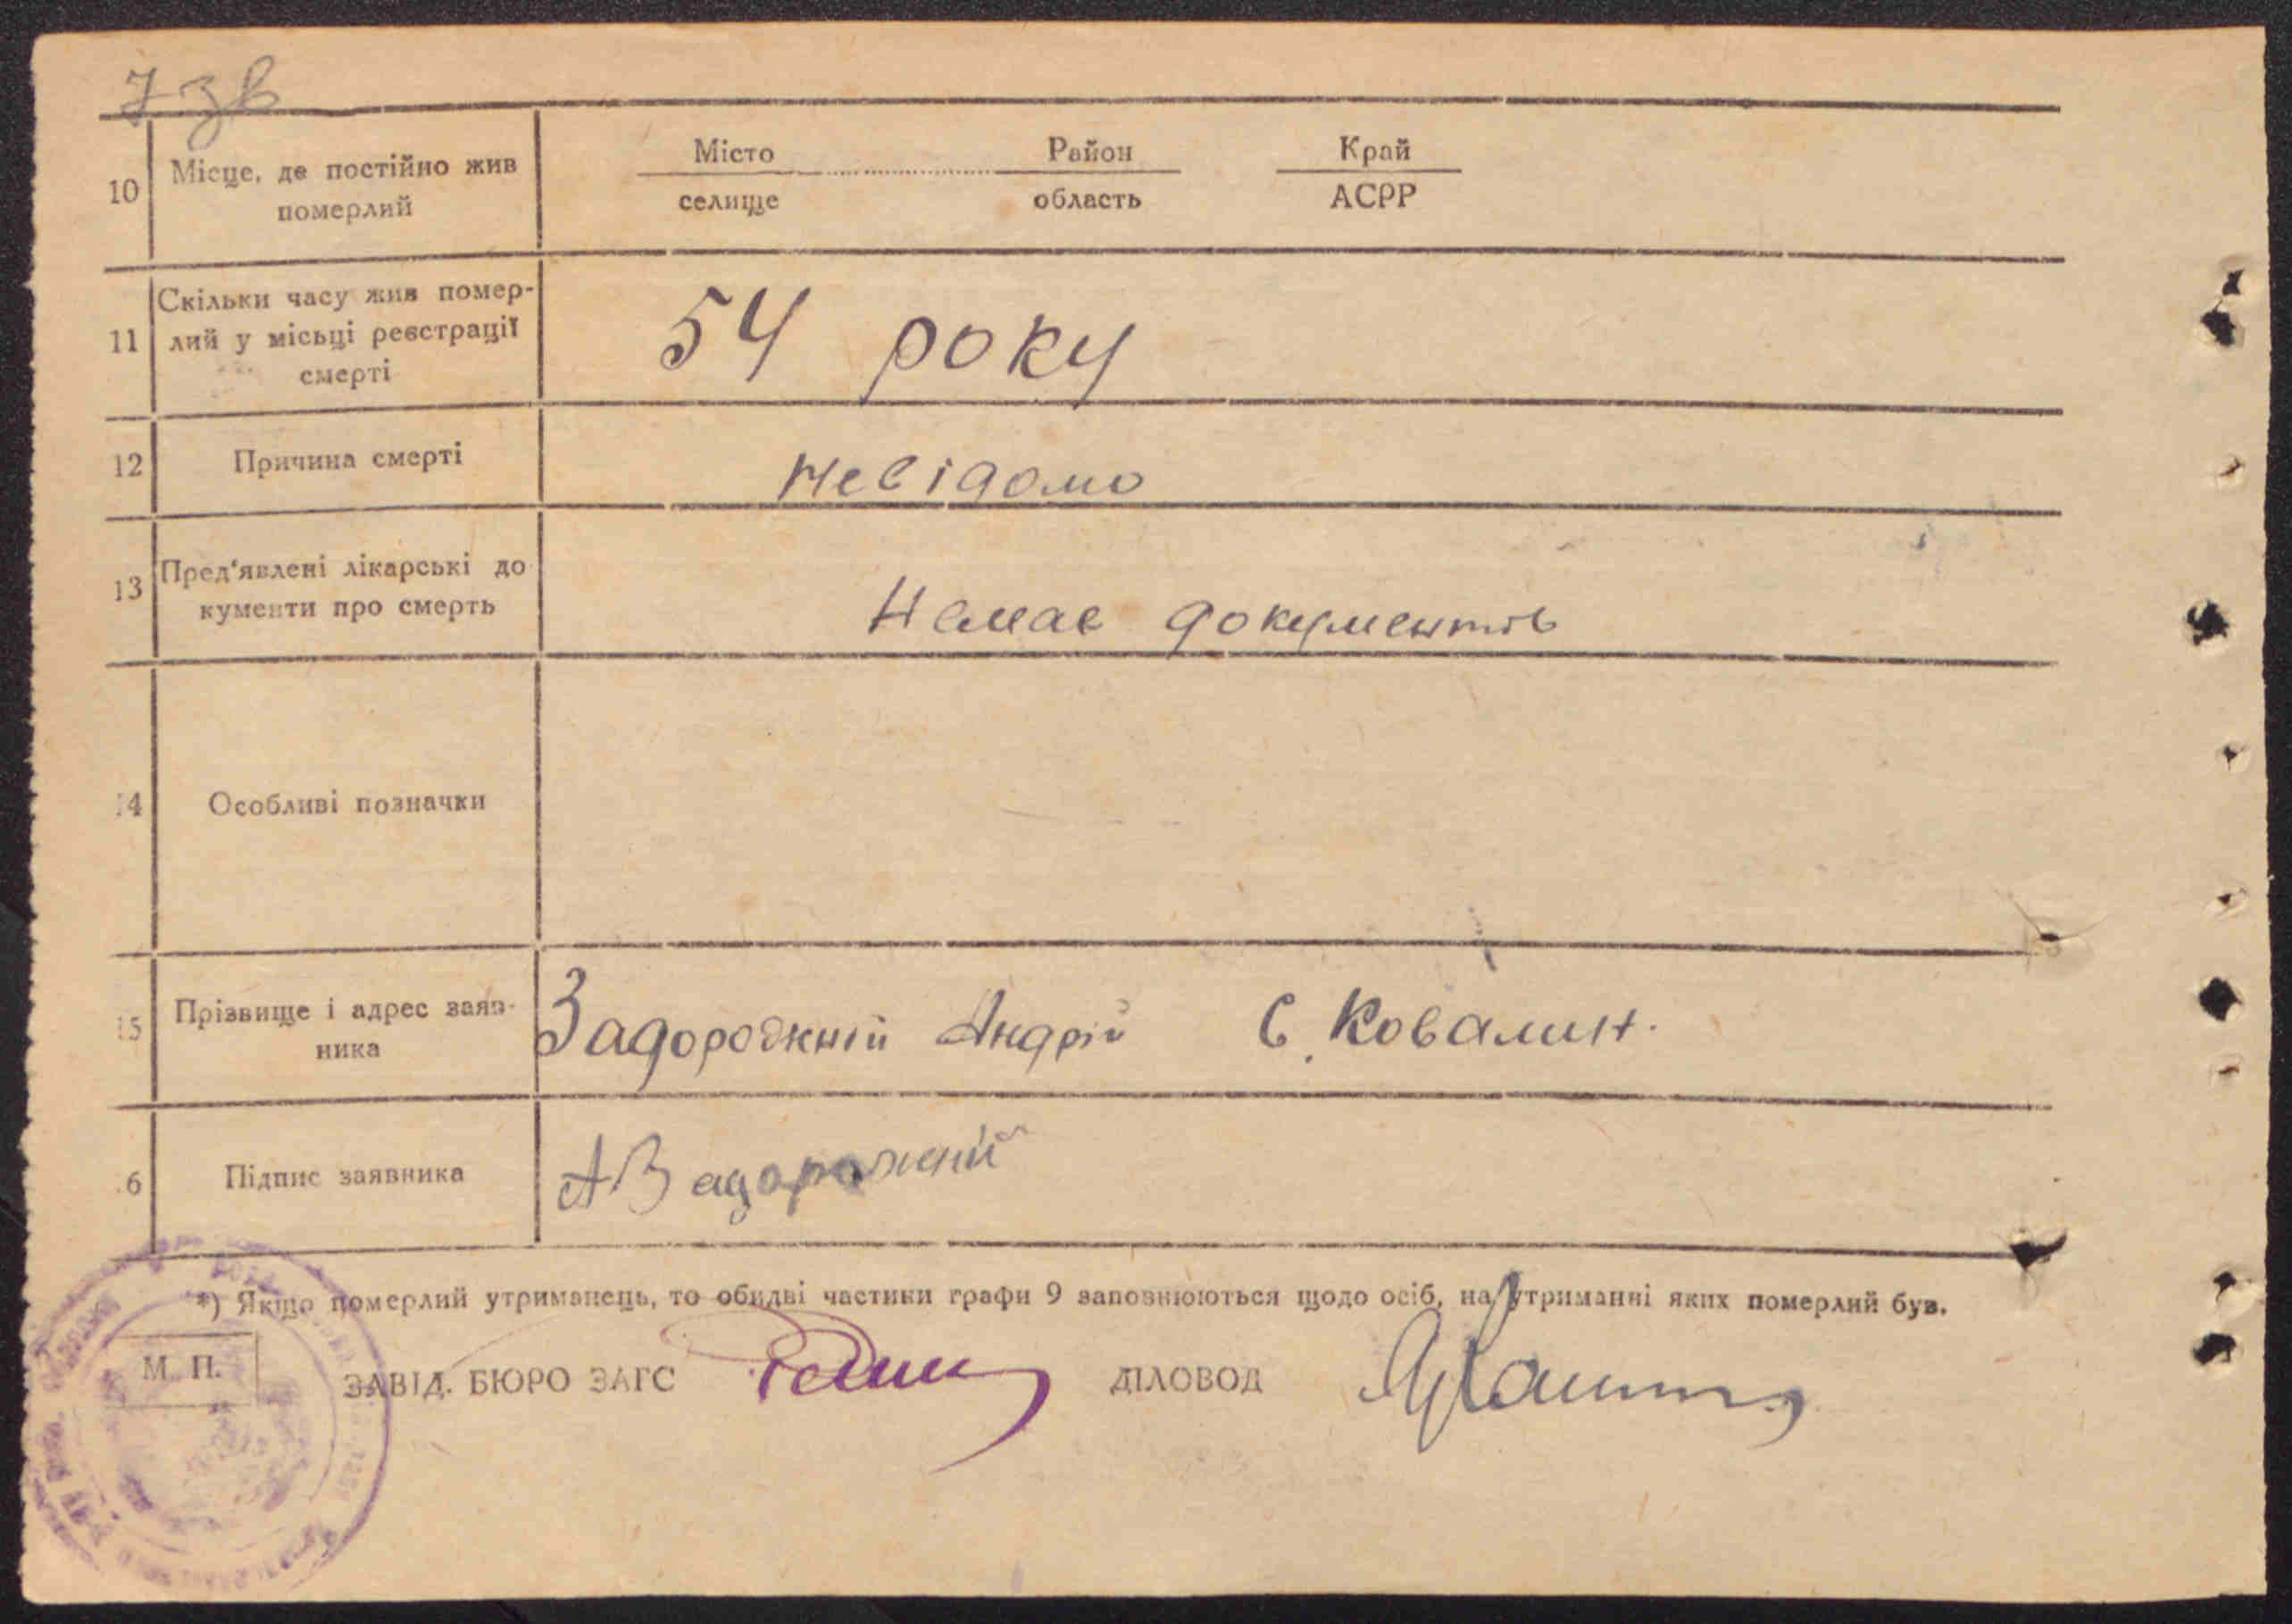 7 зв
10 Місце, де постійно жив
померлий
Місто Район Край
селище область АСРР
11 Скільки часу жив помер-
лий у місьці реєстрації
смерті
54 року
12 Причина смерті
Невідомо
13 Пред'явлені лікарські до
кументи про смерть
Немає документів
14 Особливі позначки
15 Прізвище і адрес заяв-
ника
Задорожній Андрій С. Ковалин.
16 Підпис заявника
А Задорожній
*) Якщо померлий утриманець, то обидві частини графи 9 заповнюються щодо осіб, на утриманні яких померлий був.
М. П.
ЗАВІД. БЮРО ЗАГС ДІЛОВОД